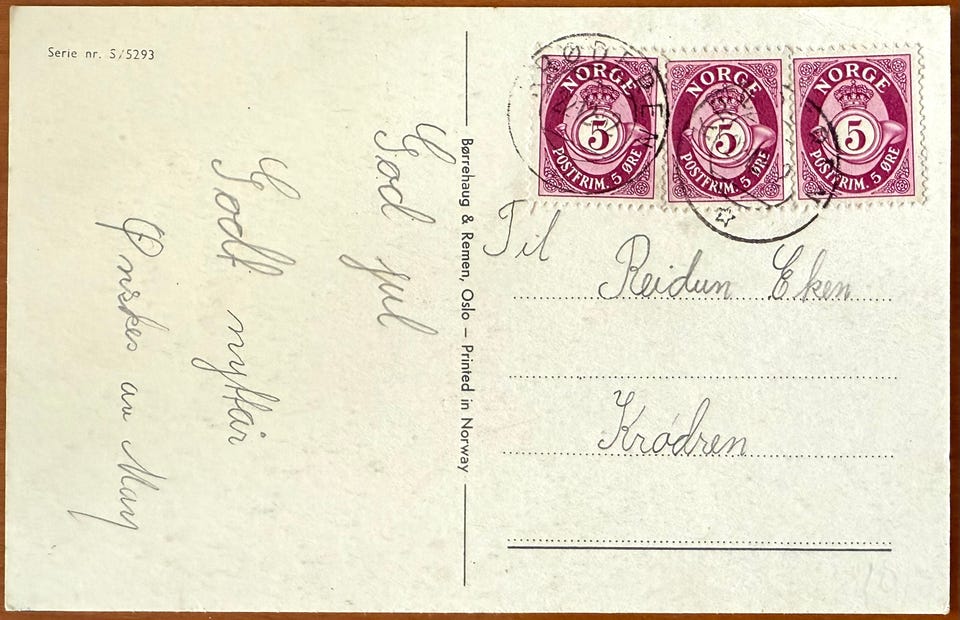 Serie nr. S/5293
God jul
Godt nyttår
Ønskes av Mary
Børrehaug & Remen, Oslo – Printed in Norway
NORGE
5
POSTFRIM. 5 ØRE
NORGE
5
POSTFRIM. 5 ØRE
NORGE
5
POSTFRIM. 5 ØRE
Til
Reidun Eken
Krødren